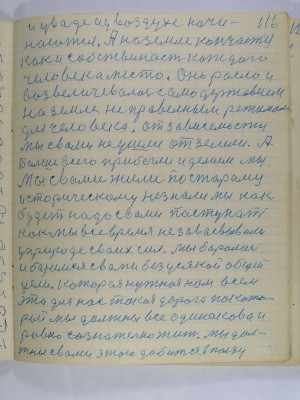 116
и уваде и увоздухе начи-
наются. А на земле кончаету
как и собственаст каждого
человека место. Оно росло и
возвеличевалос самодержавием
на земле неправельным режимом
для человека. от зависемости
мы свами не ушли от земли. А
больше всего прибегли и делием мы
Мы свами жили постараму
историческому незнали мы как
будет надо свами паступат
как мы всевремя незавоевывали
уприроде своих сил. мы баролис
и боимся свами безусякой общей
цели. Которая нужна нам всем
это для нас такая дорога покато-
рой мы должны все одинакова и
ровно сознательно жит. мы дол-
жны свами этого добитсявползу